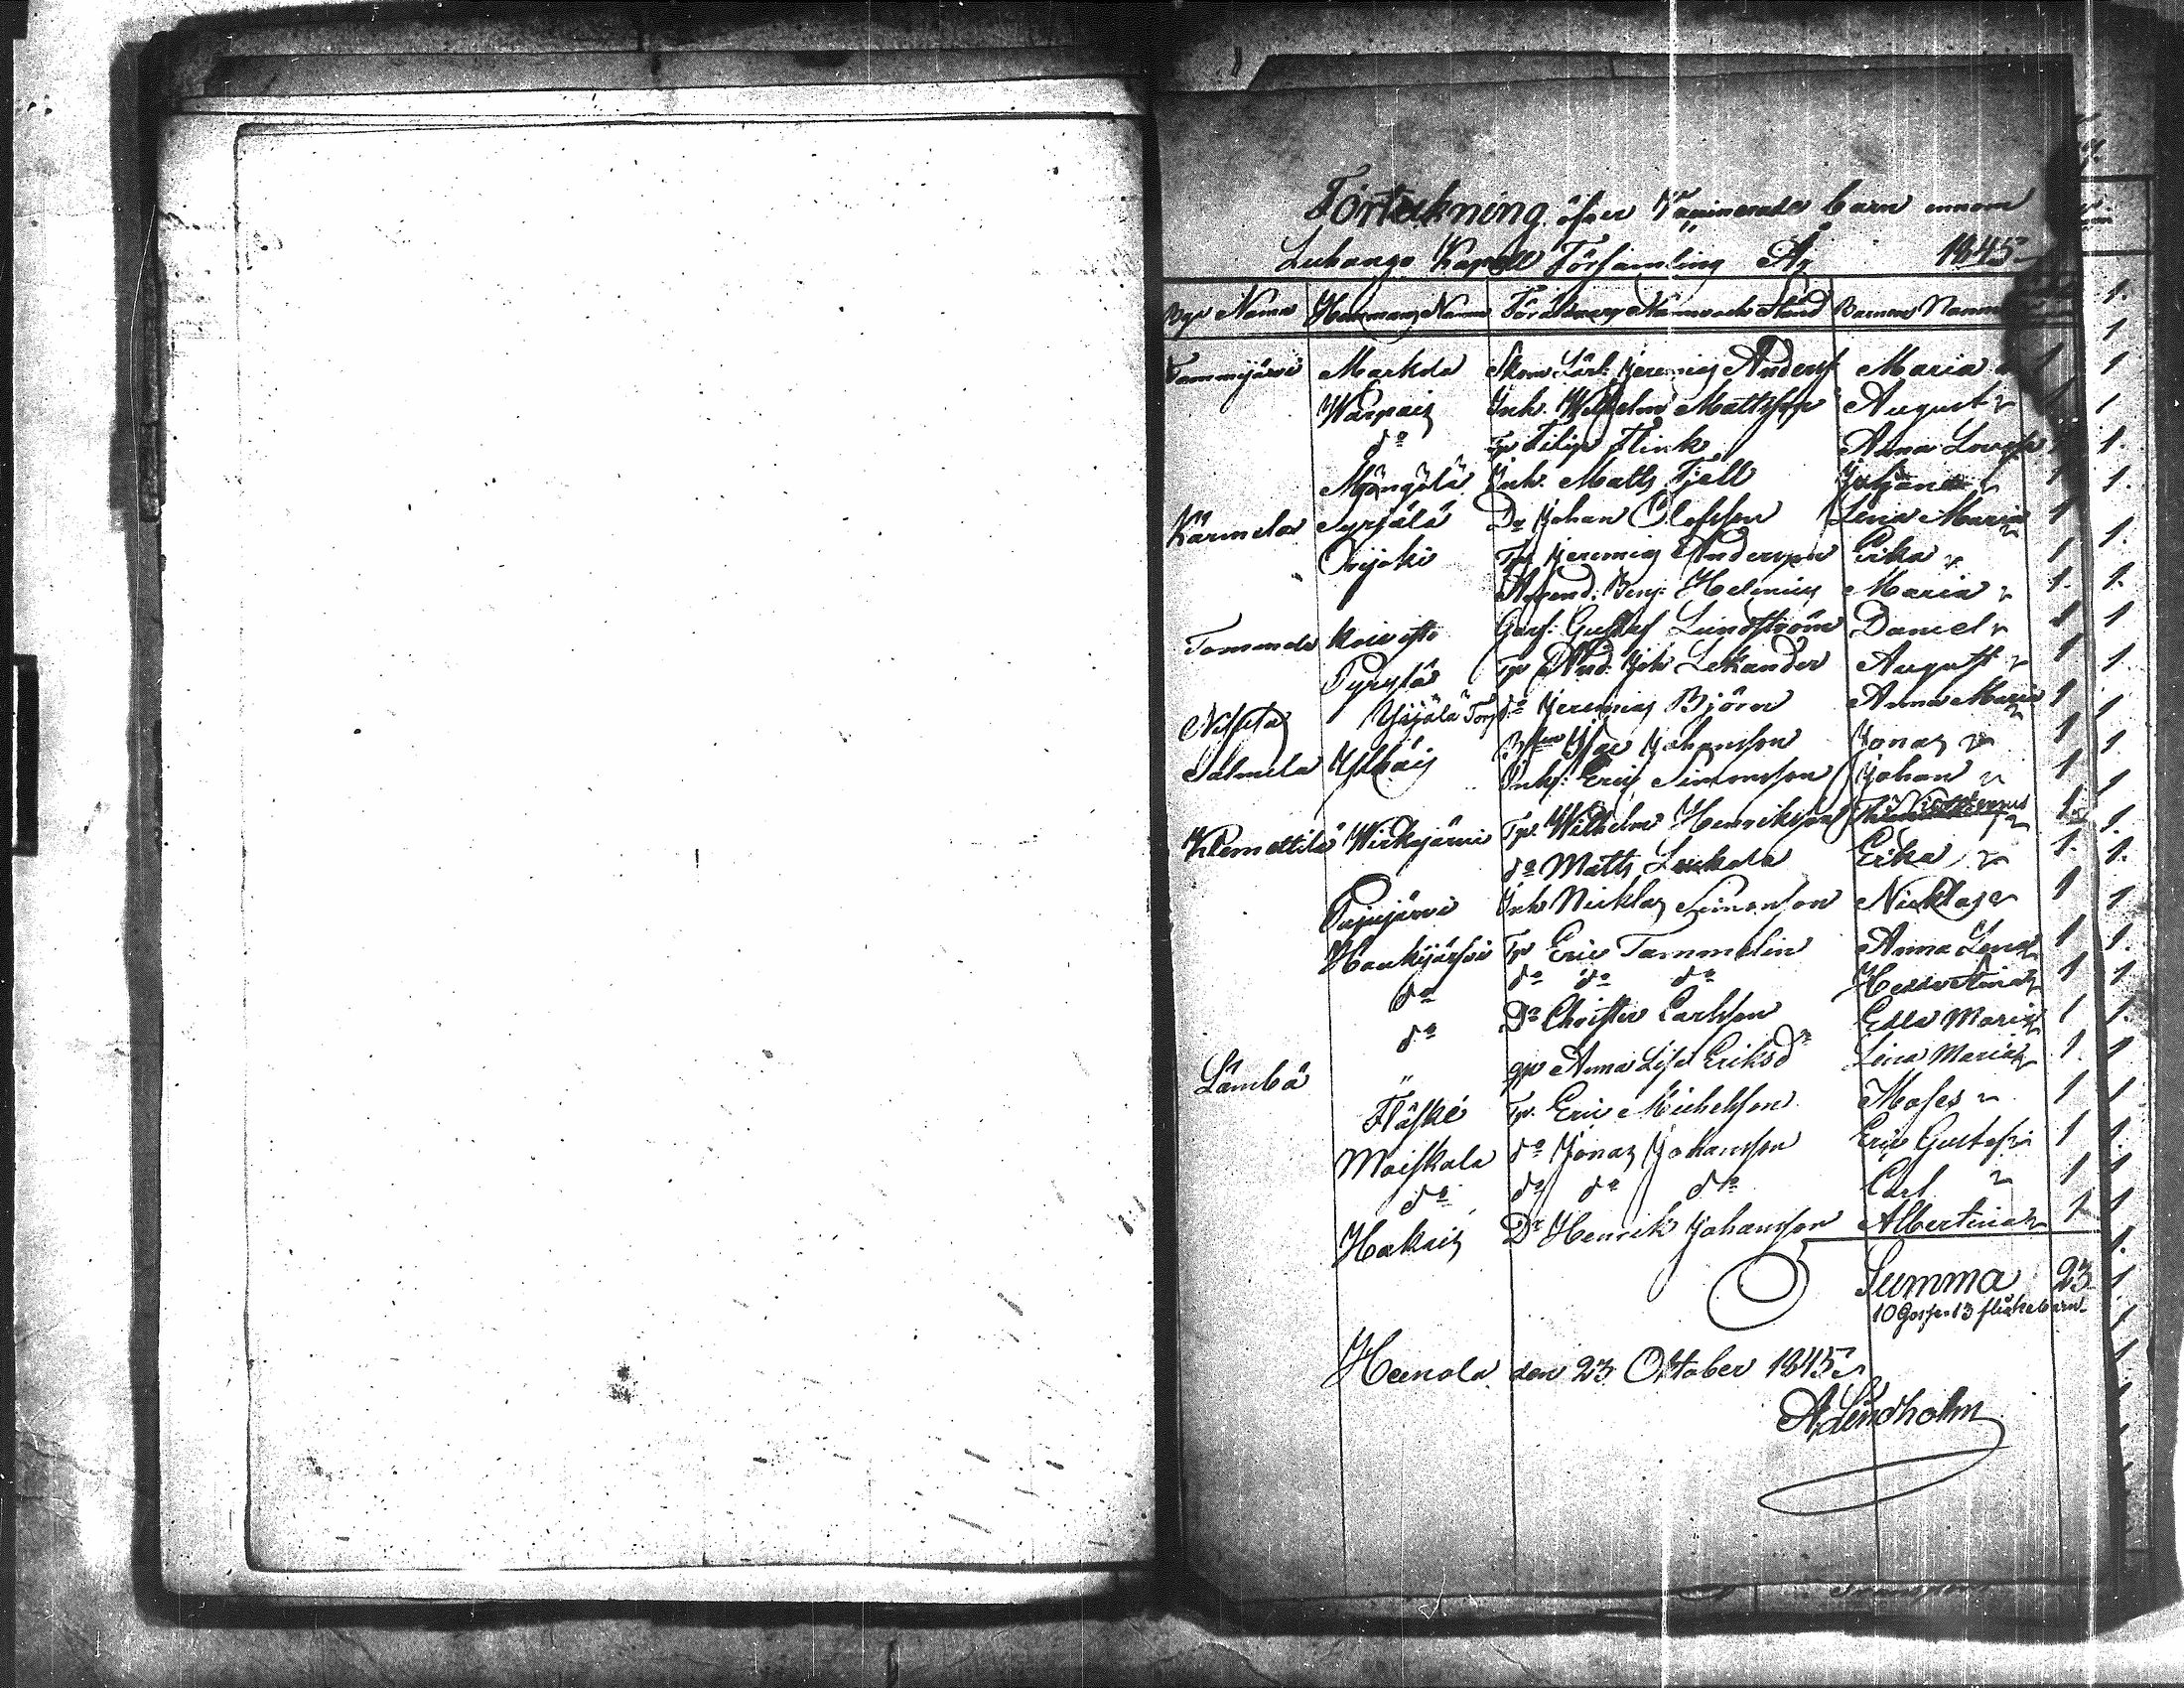 Förtekning öfver Vaccinerade barn innom
Luhango Kapell Församling År 1845
Bys Namn Hemmans Namn Föräldrars Namn och Stånd Barnens Namn
Tammijärvi Markola Skom Lärl: Jeremias Anderss Maria 1
Warpais Inh. Wilhelm Mattsson August 1
do Tp Filip Flink Anna Lovisa 1
Myöngälä Inh. Matts Fjell 1
Kärmelä Syrjälä Do Johan Olofsson Lena Maria 1
Orijoki Tp Jeremias Andersson Erika 1
Arrend. Benj. Helenius Maria 1
Tammela Koivisto Garf: Gustaf Lundström Daniel 1
Pyrylä Tp And. Joh Lekander August 1
Yrjälä Torp do Jeremias Björn Anna Maria 1
Salmela Ylhäis Isac Johansson Jonas 1
Inhs: Eric Simonsson Johan 1
Klemettilä Wirkejärvi Tp. Wilhelm Henriksson 1
do Matts Leukala Erika 1
Pajujärvi Inh Nicklas Simonson Nicklas 1
Haukijärvi Tp Eric Tammelin Anna Lena 1
do do do do Hedda Stina 1
do Do Christer Carlsson Edla Maria 1
Lämbä " Anna Lisa Eriksdr Lena Maria 1
Fläski Tp. Eric Michelsson Moses 1
Moiskala do Jonas Johansson Eric Gustaf 1
do do do do Carl 1
Hakais Do Henrik Johansson Albertina 1
Summa 23
10 Gossar 13 flickebarn
Heinola den 23 Oktober 1845
A. Lindholm